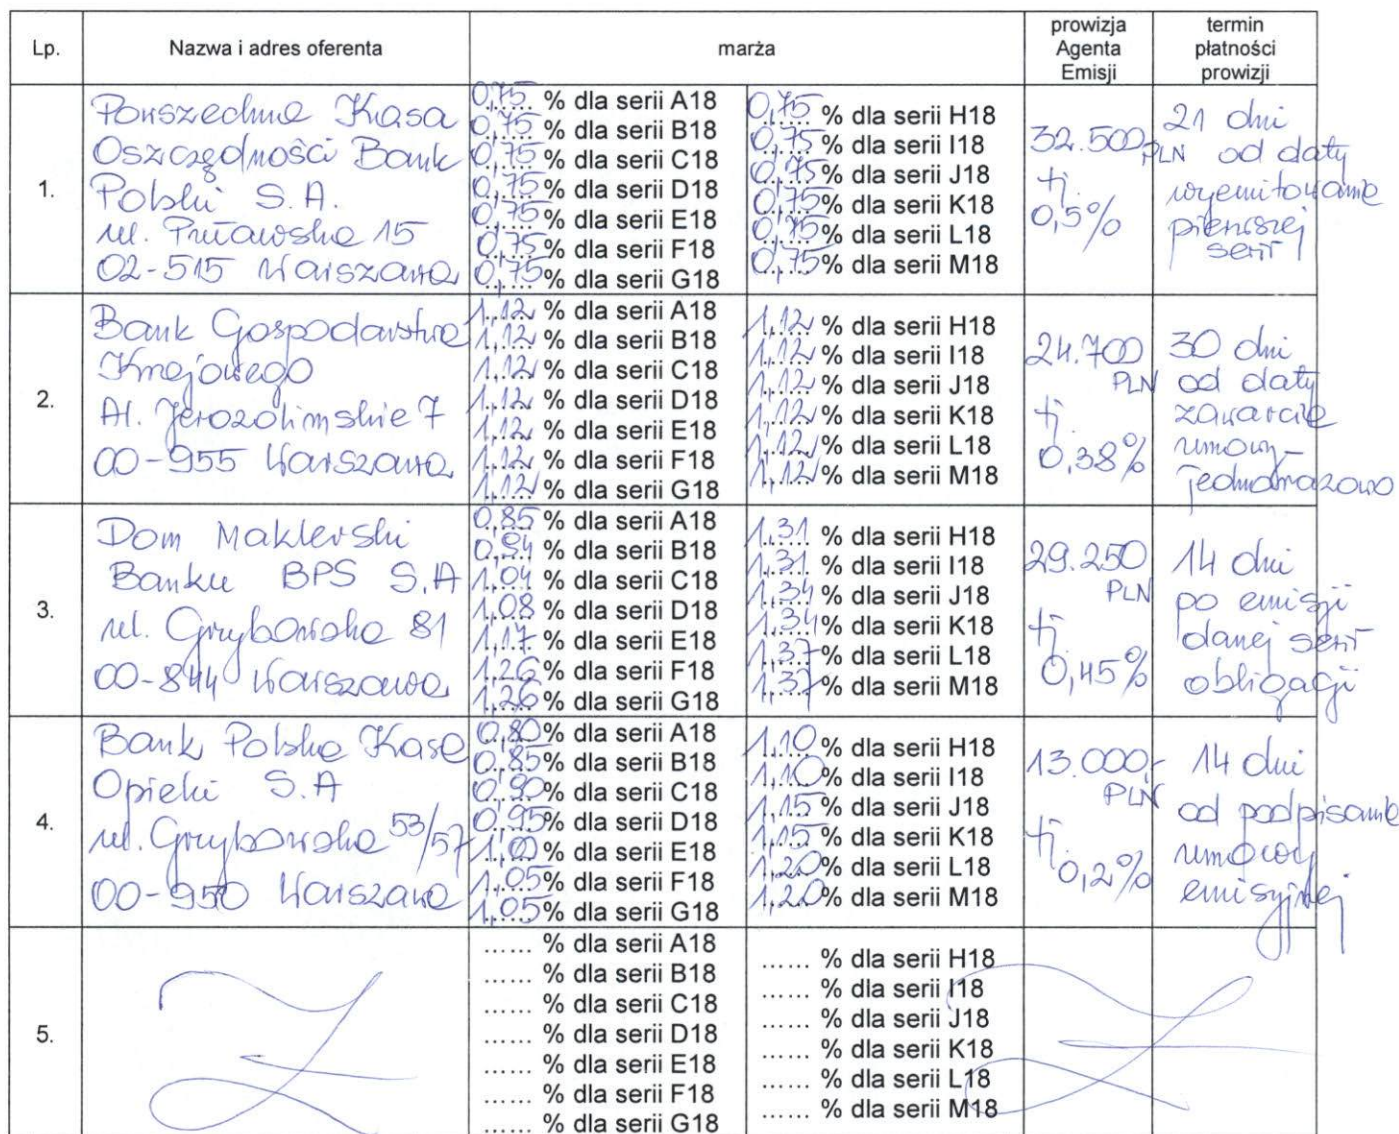 Lp. Nazwa i adres oferenta marża prowizja Agenta Emisji termin płatności prowizji
1.
Powszechna Kasa
Oszczędności Bank
Polski S.A.
ul. Puławska 15
02-515 Warszawa
0,75 % dla serii A18
0,75 % dla serii B18
0,75 % dla serii C18
0,75 % dla serii D18
0,75 % dla serii E18
0,75 % dla serii F18
0,75 % dla serii G18
0,75 % dla serii H18
0,75 % dla serii I18
0,75 % dla serii J18
0,75 % dla serii K18
0,75 % dla serii L18
0,75 % dla serii M18
32.500
PLN
tj.
0,5%
21 dni
od daty
wyemitowania
pierwszej
serii
2.
Bank Gospodarstwa
Krajowego
Al. Jerozolimskie 7
00-955 Warszawa
1,12 % dla serii A18
1,12 % dla serii B18
1,12 % dla serii C18
1,12 % dla serii D18
1,12 % dla serii E18
1,12 % dla serii F18
1,12 % dla serii G18
1,12 % dla serii H18
1,12 % dla serii I18
1,12 % dla serii J18
1,12 % dla serii K18
1,12 % dla serii L18
1,12 % dla serii M18
24.700
PLN
tj.
0,38%
30 dni
od daty
zawarcia
umowy -
jednorazowo
3.
Dom Maklerski
Banku BPS S.A
ul. Grzybowska 81
00-844 Warszawa
0,85 % dla serii A18
0,94 % dla serii B18
1,04 % dla serii C18
1,08 % dla serii D18
1,17 % dla serii E18
1,26 % dla serii F18
1,26 % dla serii G18
1,31 % dla serii H18
1,31 % dla serii I18
1,34 % dla serii J18
1,34 % dla serii K18
1,37 % dla serii L18
1,37 % dla serii M18
29.250
PLN
tj.
0,45%
14 dni
po emisji
danej serii
obligacji
4.
Bank Polska Kasa
Opieki S.A
ul. Grzybowska 53/57
00-950 Warszawa
0,80 % dla serii A18
0,85 % dla serii B18
0,90 % dla serii C18
0,95 % dla serii D18
1,00 % dla serii E18
1,05 % dla serii F18
1,05 % dla serii G18
1,10 % dla serii H18
1,10 % dla serii I18
1,15 % dla serii J18
1,15 % dla serii K18
1,20 % dla serii L18
1,20 % dla serii M18
13.000,-
PLN
tj.
0,2%
14 dni
od podpisania
umowy
emisyjnej
5.
...... % dla serii A18
...... % dla serii B18
...... % dla serii C18
...... % dla serii D18
...... % dla serii E18
...... % dla serii F18
...... % dla serii G18
...... % dla serii H18
...... % dla serii I18
...... % dla serii J18
...... % dla serii K18
...... % dla serii L18
...... % dla serii M18